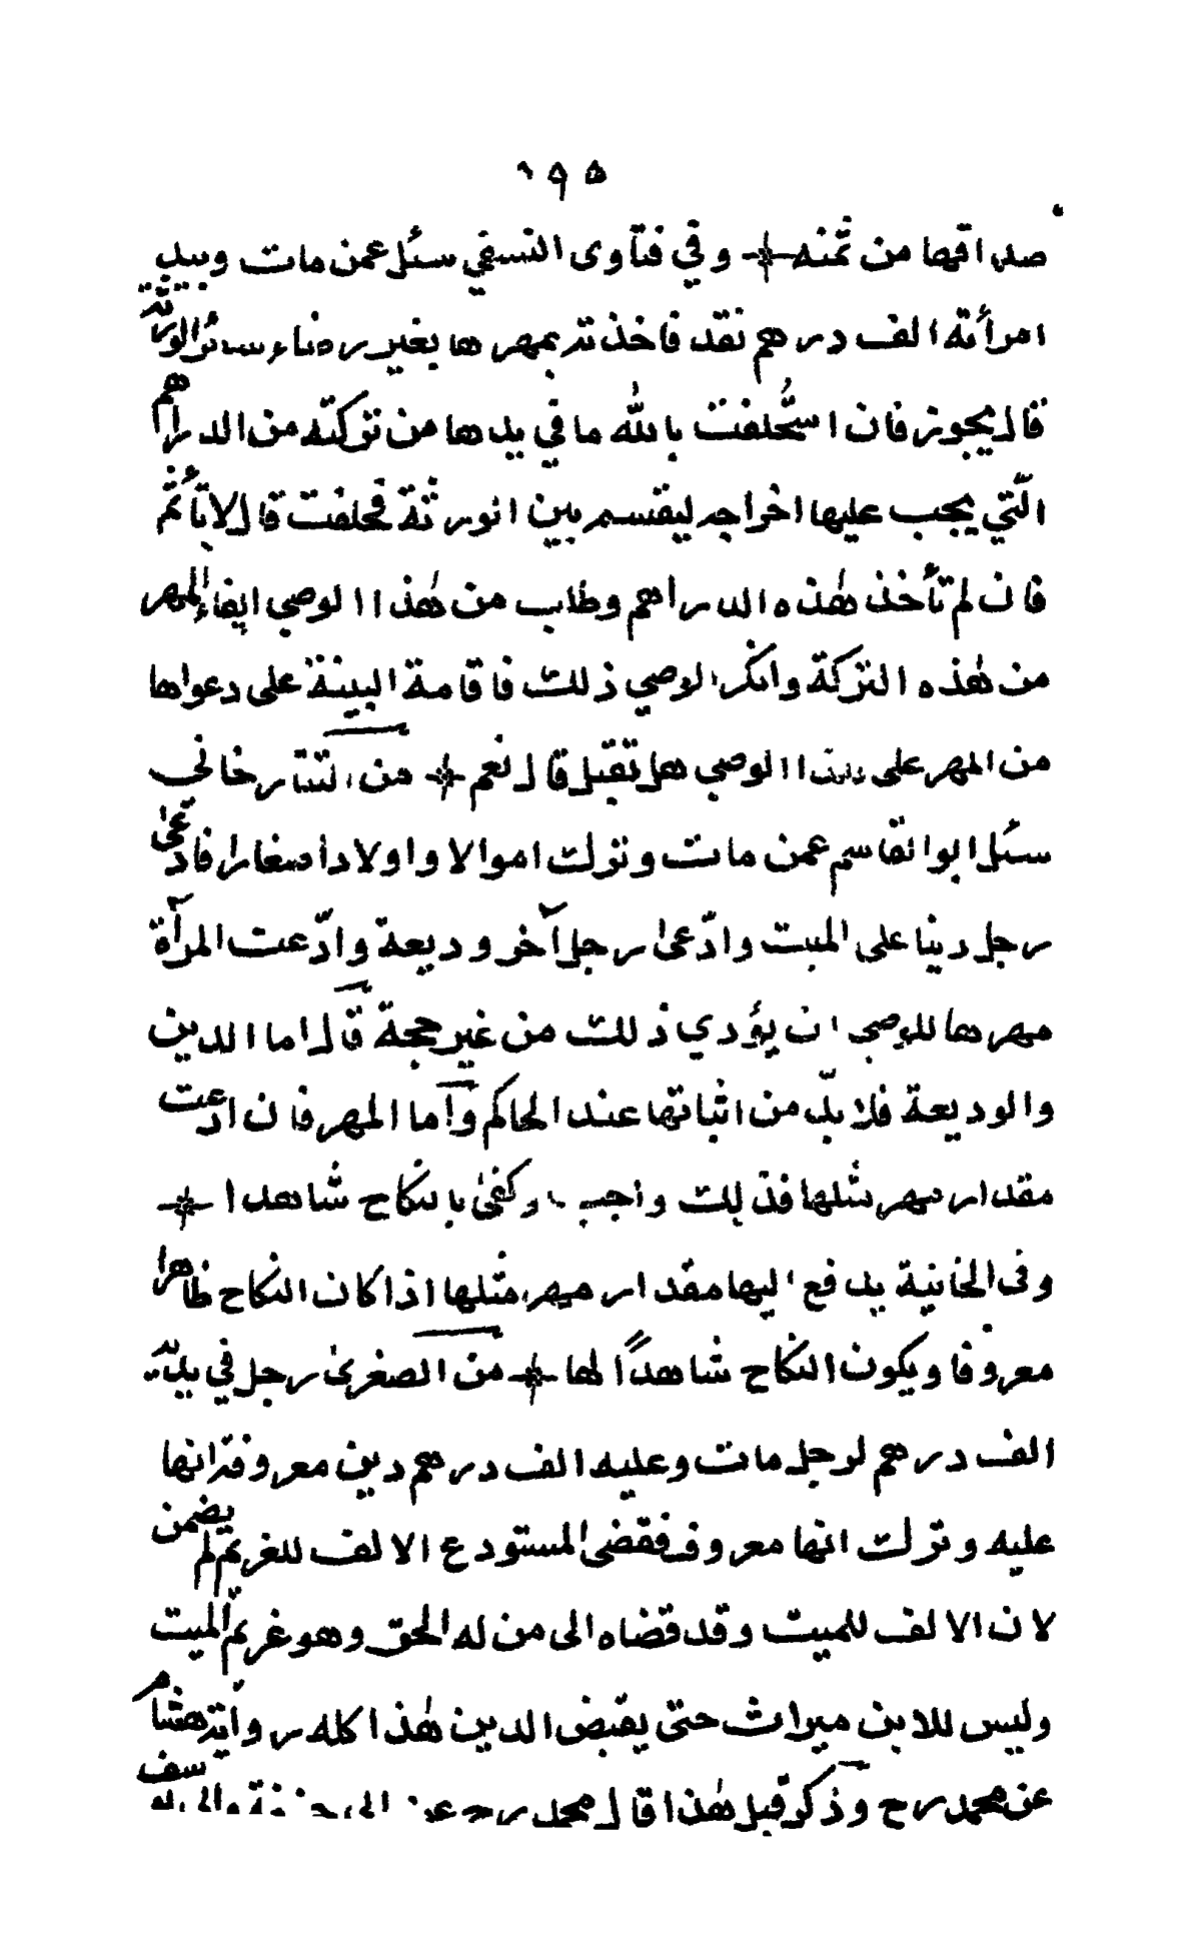 ١٩٥
صداقها من ثمنه وفي فتاوى النسفي سئل عمن مات وبيد
امرأته الف درهم نقد فاخذته بمهرها بغير رضاء سائر الورثة
قال يجوز فان استُحلفت بالله ما في يدها من تركته من الدراهم
الّتي يجب عليها اخراجه ليقسم بين الورثة فحلفت قال لا تأثم
فان لم تأخذ هٰذه الدراهم وطلب من هٰذا الوصي ايفاء المهر
من هٰذه التركة وانكر الوصي ذلك فاقامة البينة على دعواها
من المهر على هذا الوصي هل تقبل قال نعم من التتارخاني
سئل ابو القاسم عمن مات وترك اموالا واولادا صغارا فادّعىٰ
رجل دينا على الميت وادّعىٰ رجل آخر وديعة وادّعت المرآة
مهرها للوصي ان يؤدي ذلك من غير حجة قال اما الدين
والوديعة فلا بدّ من اثباتها عند الحاكم وأما المهر فان ادعت
مقدار مهر مثلها فذلك واجب وكفىٰ بالنكاح شاهدا
وفى الخانية يدفع اليها مقدار مهر مثلها اذا كان النكاح ظاهرا
معروفا ويكون النكاح شاهدًا لها من الصغرىٰ رجل في يديه
الف درهم لرجل مات وعليه الف درهم دين معروفة انها
عليه وترك ابنها معروف فقضى المستودع الالف للغريم لم يضمن
لان الالف للميت وقد قضاه الى من له الحق وهو غريم الميت
وليس للابن ميراث حتى يقبض الدين هٰذا كله رواية هشام
عن محمد رح وذكر قبل هٰذا قال محمد رح عن ابي حنيفة وابي يوسف